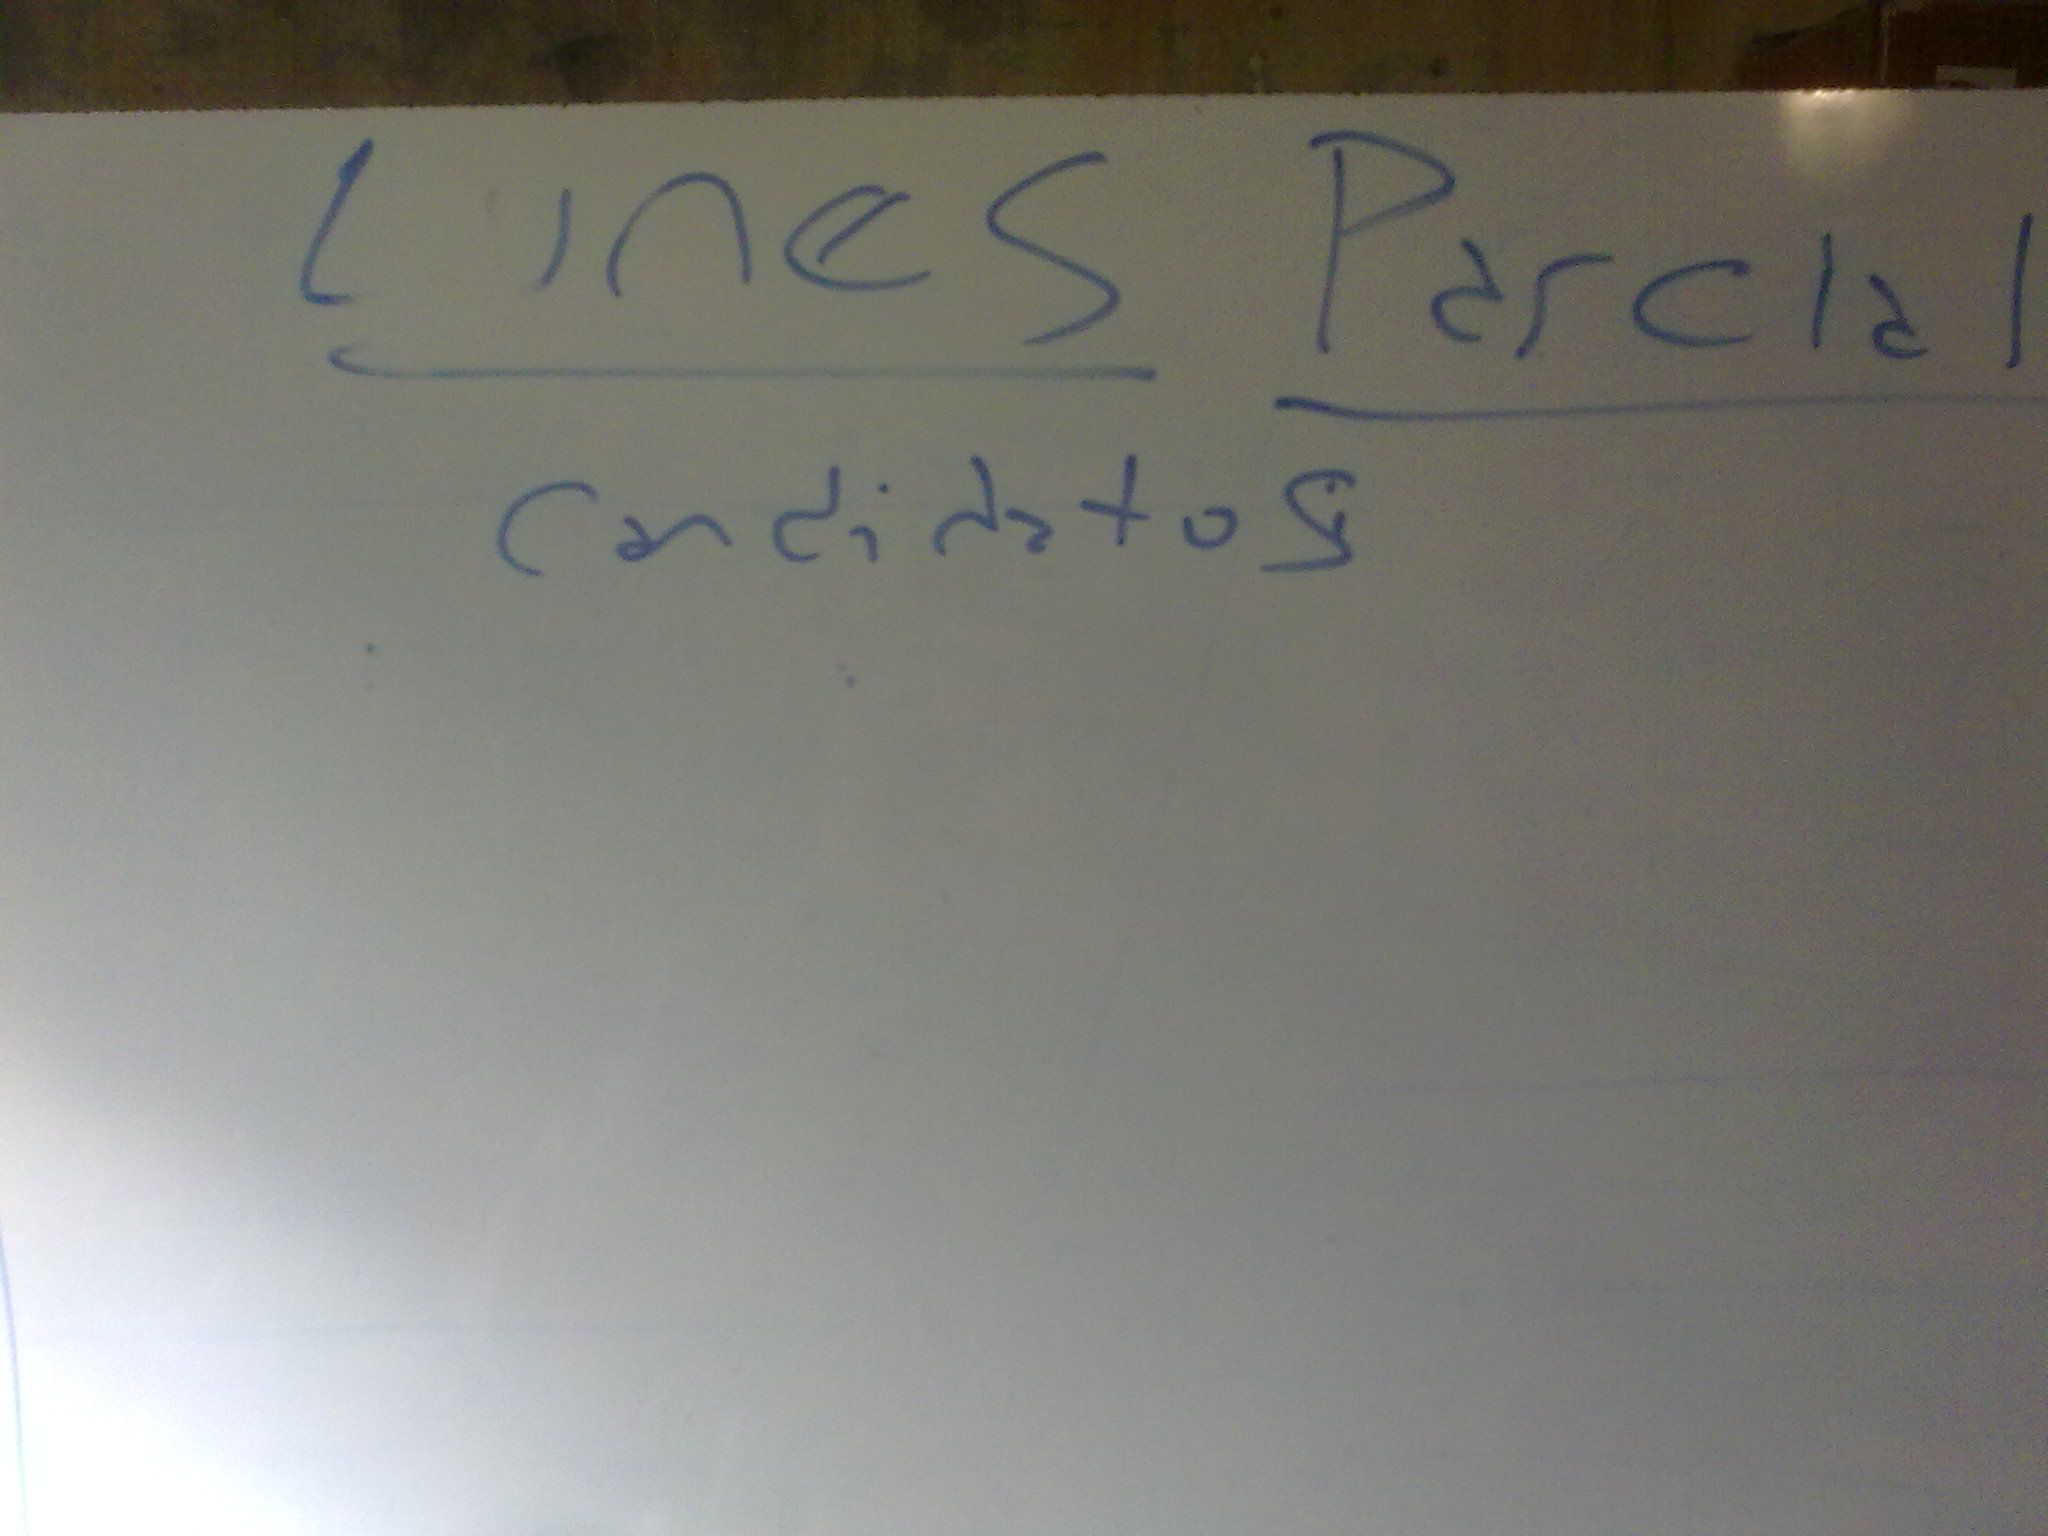 Lines Parcial
candidatos